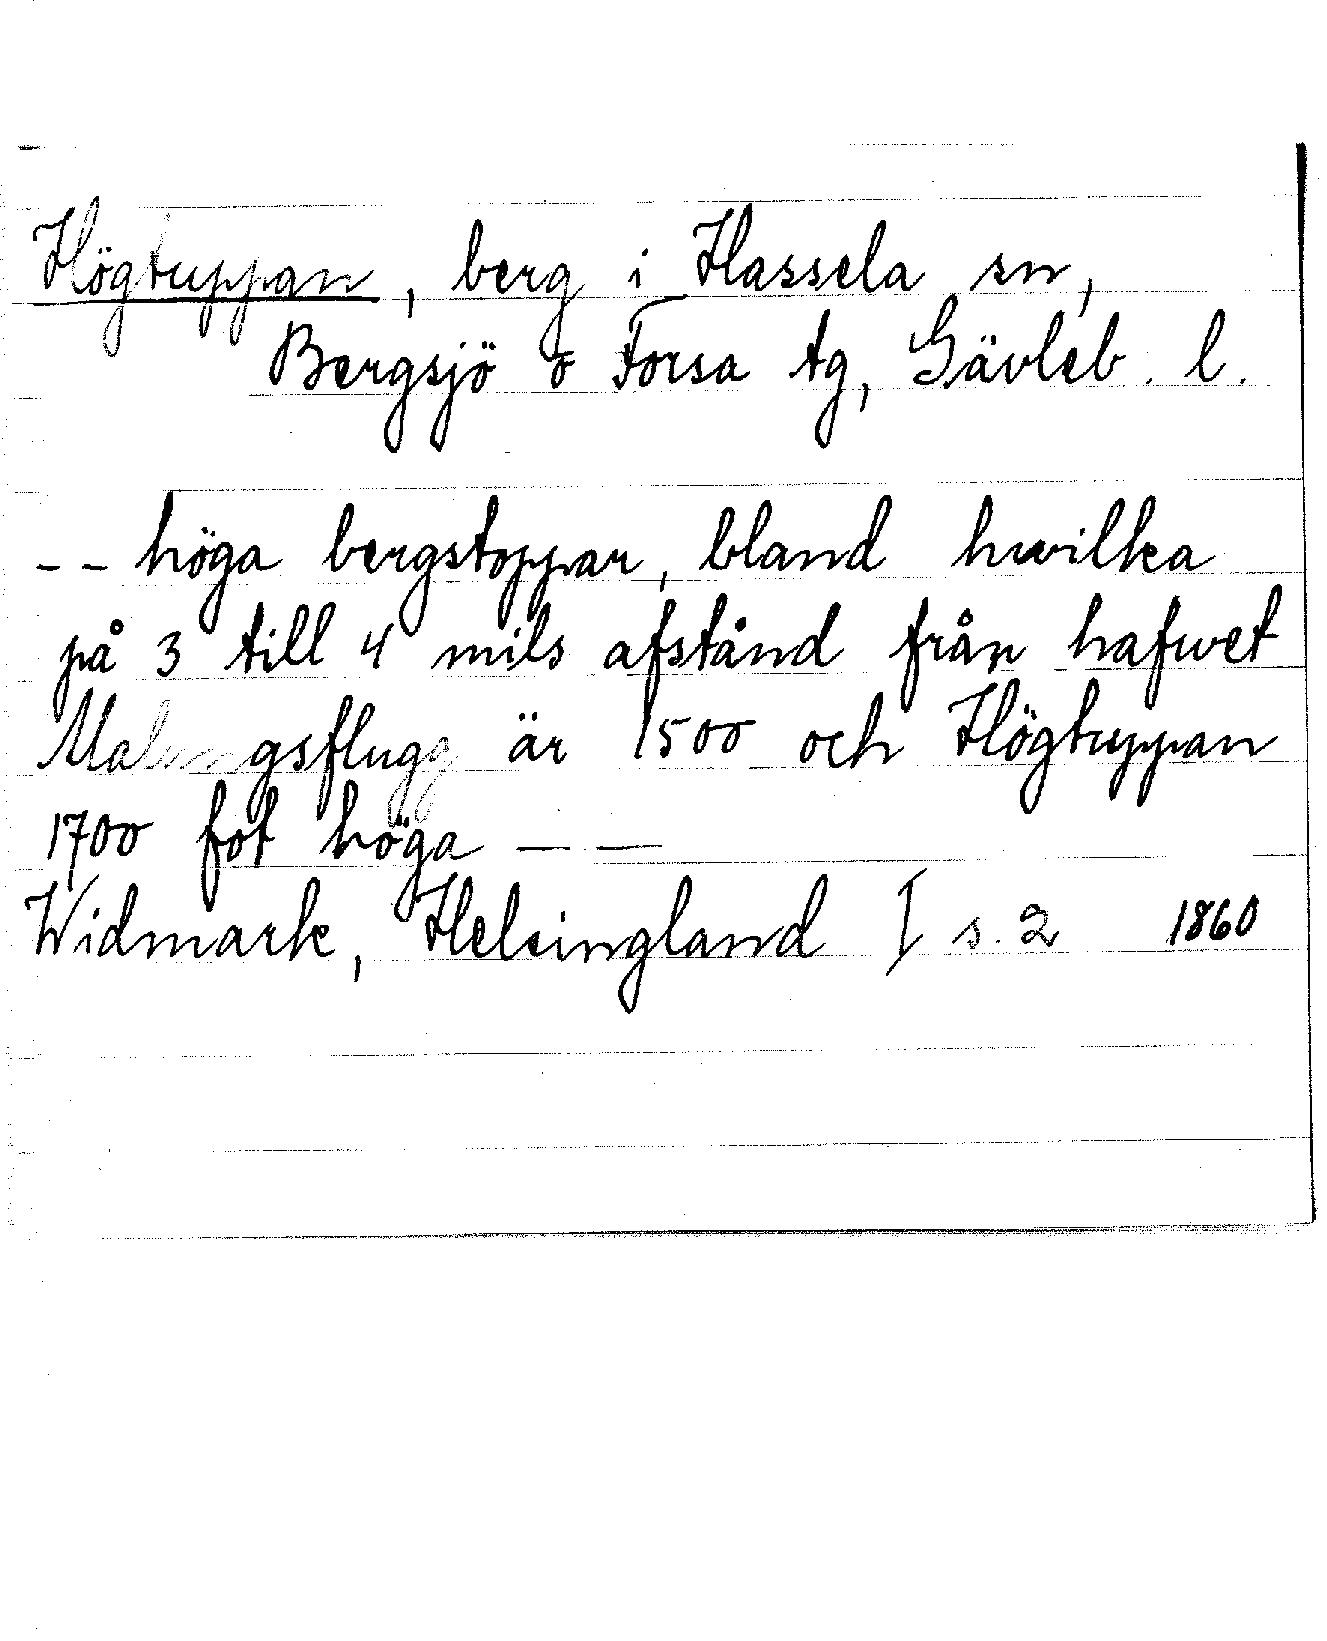 Högtuppan, berg i Hassela sn,
Bergsjö o Forsa tg, Gävleb. l.
-- höga bergstoppar, bland hwilka
på 3 till 4 mils afstånd från hafwet
Malungsflugg är 1500 och Högtuppan
1700 fot höga — —
Widmark, Helsingland I s. 2 1860